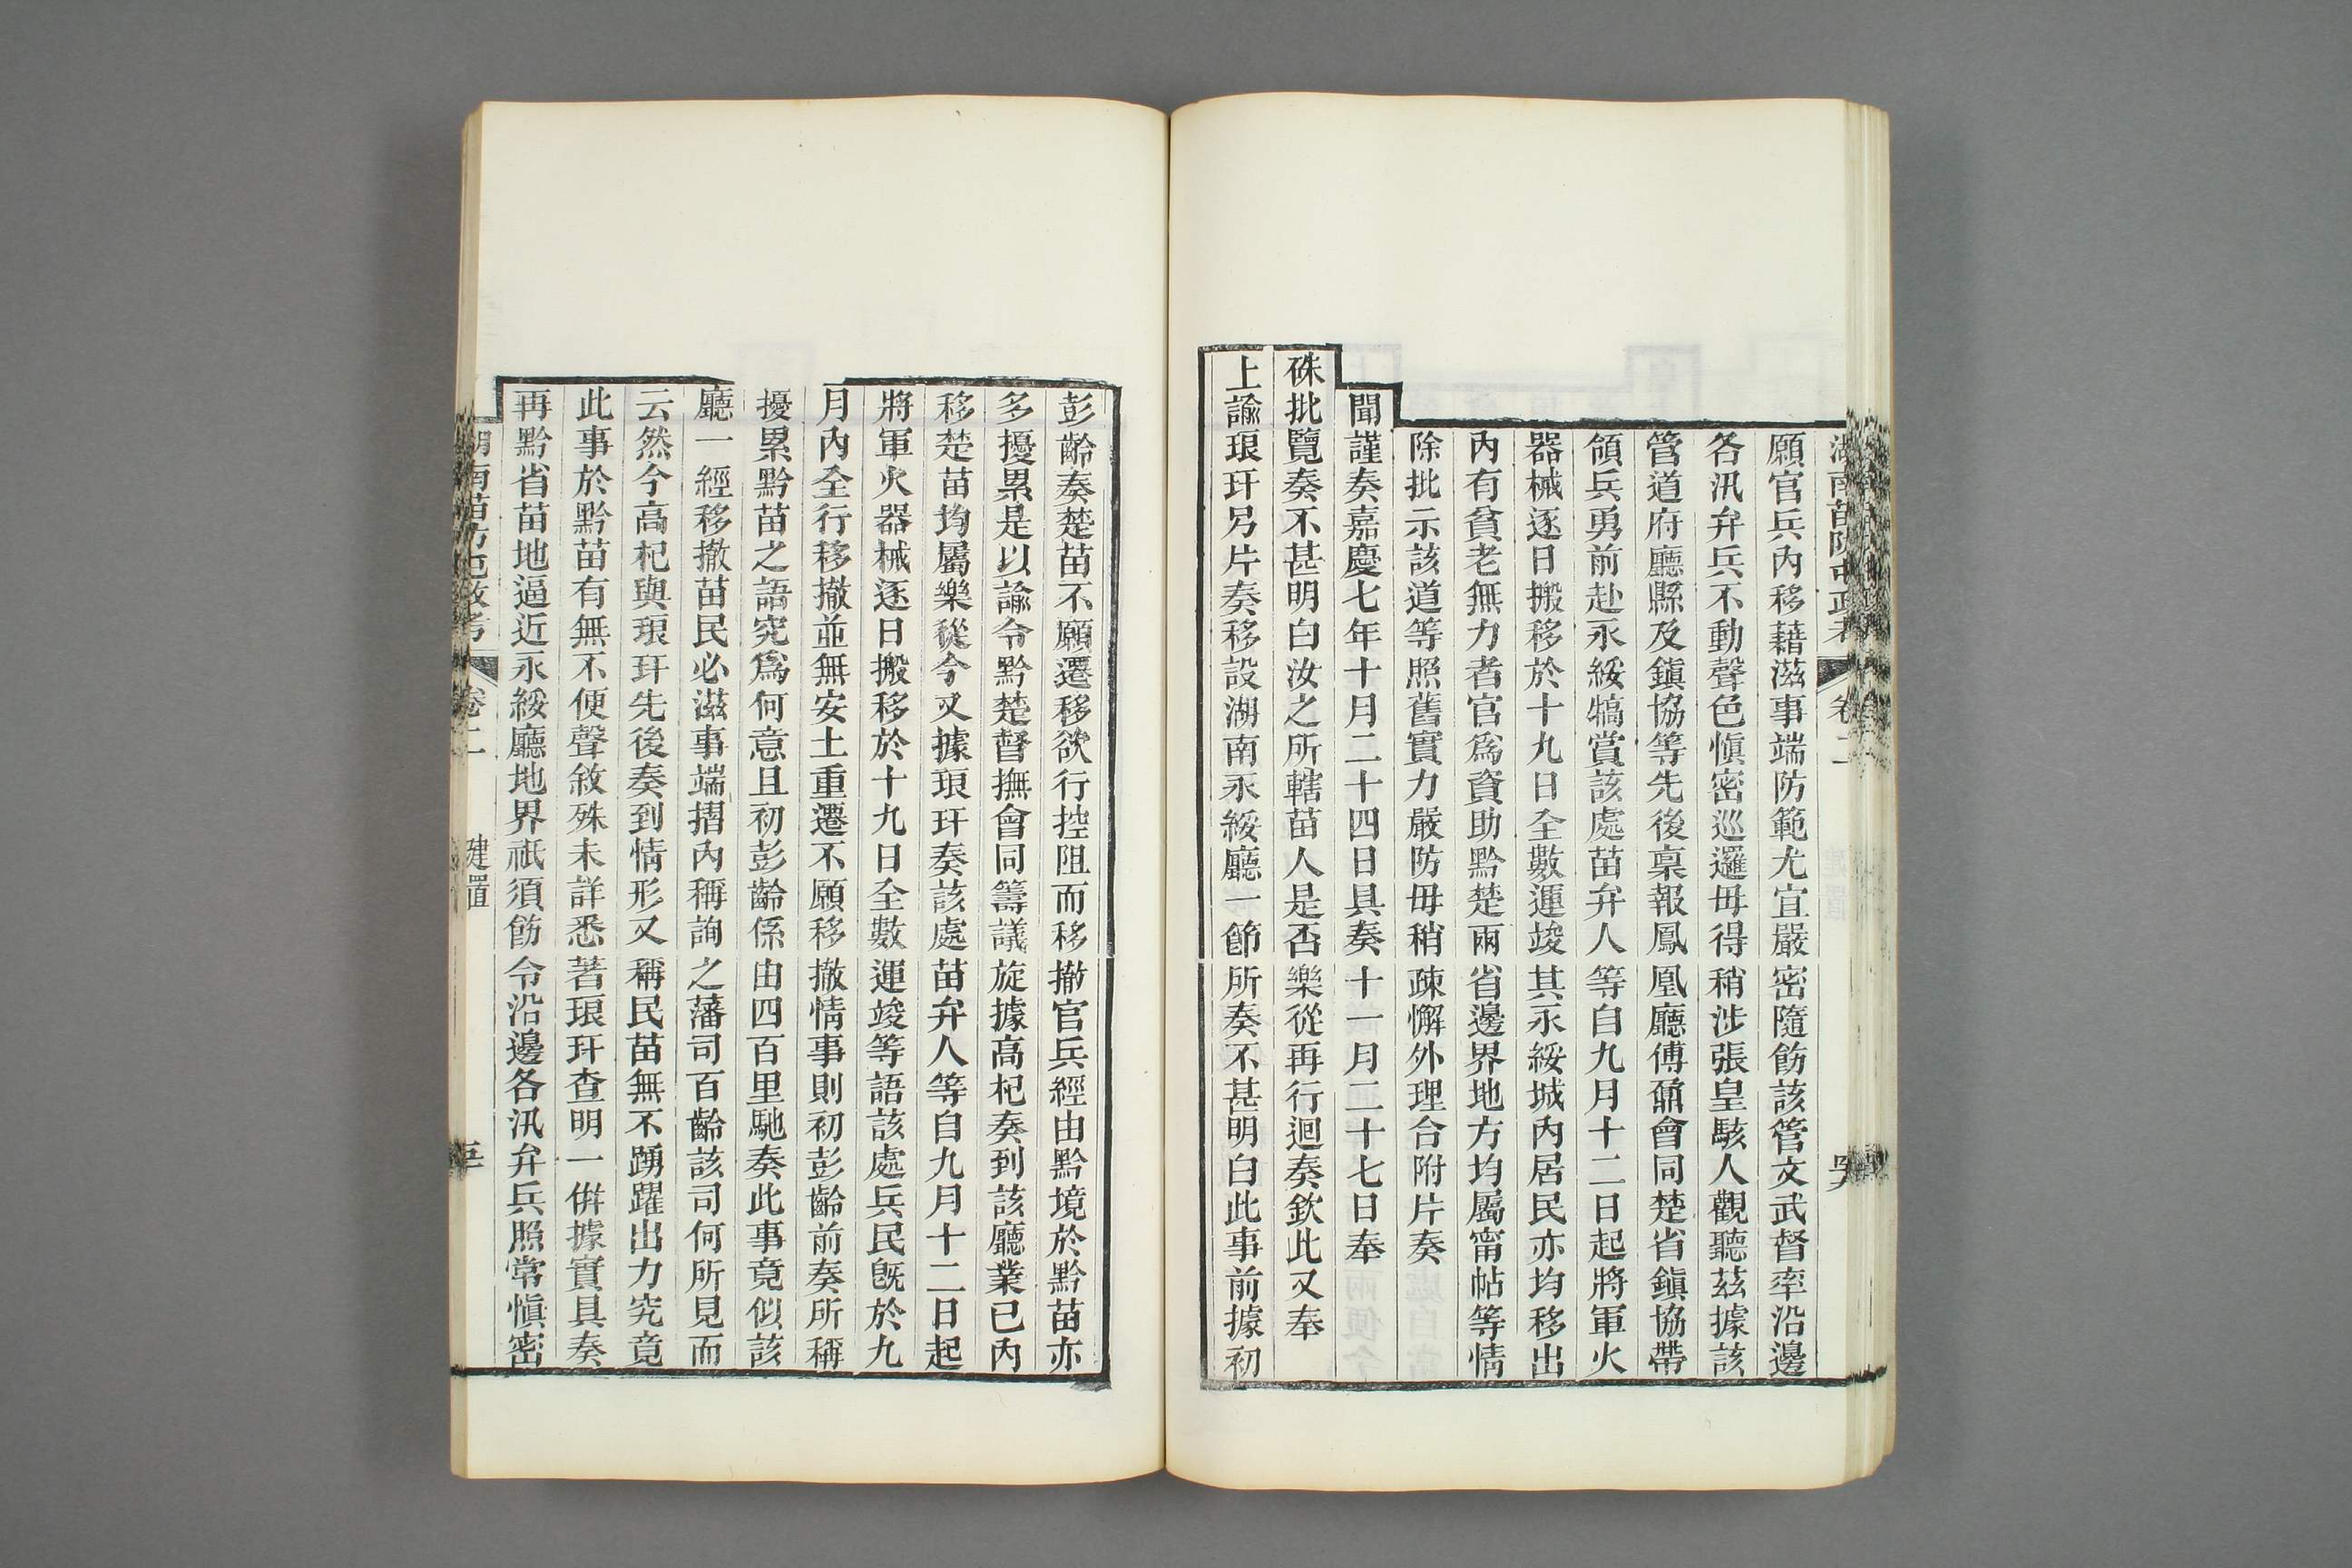 湖南苗防屯政考 卷二
願官兵內移藉滋事端防範尤宜嚴密隨飭該管文武督率沿邊
各汛弁兵不動聲色愼密巡邏毋得稍涉張皇駭人觀聽茲據該
管道府廳縣及鎭協等先後稟報鳳凰廳傅鼐會同楚省鎭協帶
領兵勇前赴永綏犒賞該處苗弁人等自九月十二日起將軍火
器械逐日搬移於十九日全數運竣其永綏城內居民亦均移出
內有貧老無力者官爲資助黔楚兩省邊界地方均屬甯帖等情
除批示該道等照舊實力嚴防毋稍疎懈外理合附片奏
聞謹奏嘉慶七年十月二十四日具奏十一月二十七日奉
硃批覽奏不甚明白汝之所轄苗人是否樂從再行迴奏欽此又奉
上諭琅玕另片奏移設湖南永綏廳一節所奏不甚明白此事前據初
彭齡奏楚苗不願遷移欲行控阻而移撤官兵經由黔境於黔苗亦
多擾累是以諭令黔楚督撫會同籌議旋據高杞奏到該廳業已內
移楚苗均屬樂從今又據琅玕奏該處苗弁人等自九月十二日起
將軍火器械逐日搬移於十九日全數運竣等語該處兵民旣於九
月內全行移撤並無安土重遷不願移撤情事則初彭齡前奏所稱
擾累黔苗之語究爲何意且初彭齡係由四百里馳奏此事竟似該
廳一經移撤苗民必滋事端摺內稱詢之藩司百齡該司何所見而
云然今高杞與琅玕先後奏到情形又稱民苗無不踴躍出力究竟
此事於黔苗有無不便聲敘殊未詳悉著琅玕查明一倂據實具奏
再黔省苗地逼近永綏廳地界祇須飭令沿邊各汛弁兵照常愼密
湖南苗防屯政考 卷二 建置